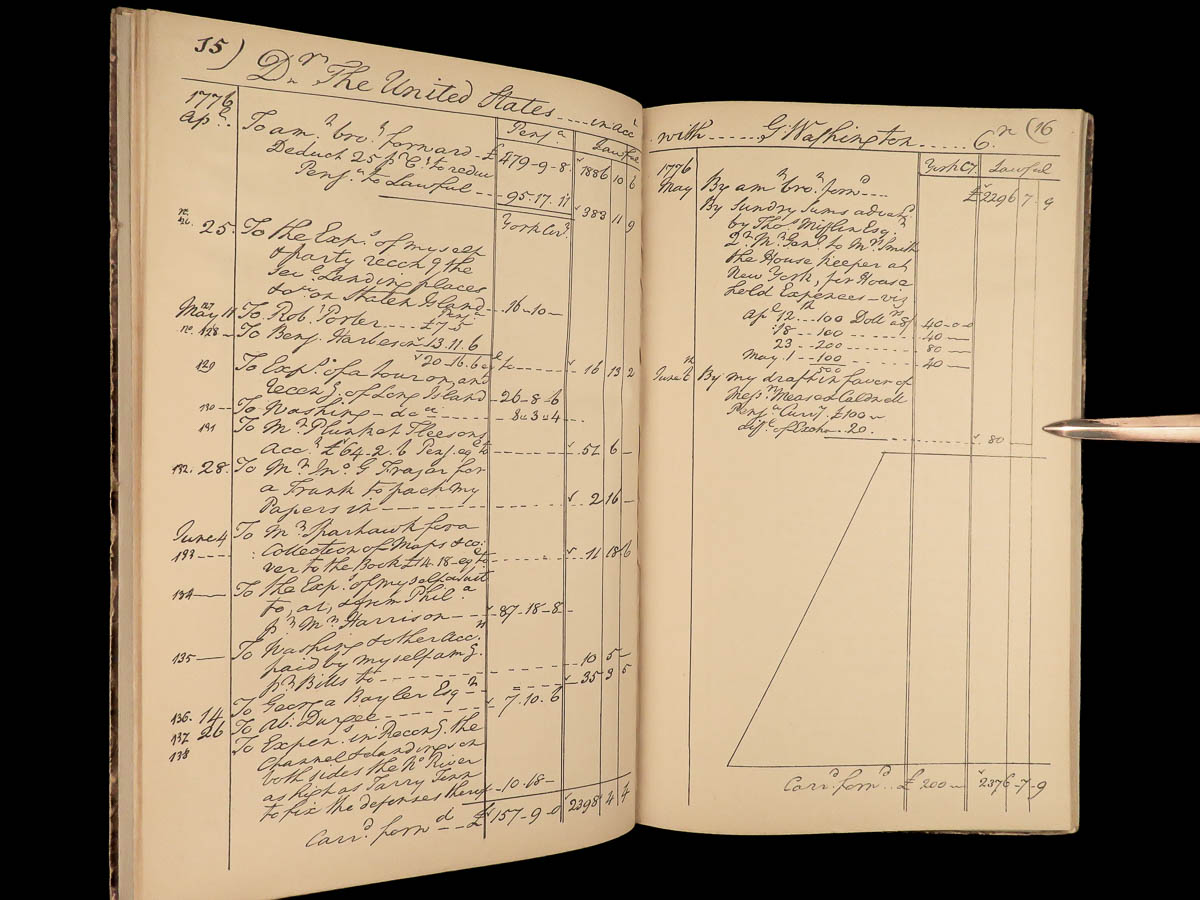 15)
Dr. The United States .... in acct
Pensa
Lawful
1776
Apl.
To amt. bro.t forward - £ 479-9-8. 1886 10 6
Deduct 25 pr Ct. to reduce
Pensa to Lawful --- 95.17.11
383 11 9
York Curr.
25. To the Exps. of myself
& party recong the
sevl. Landing places
on Staten Island -- 16-10-
Pensa
May 11 To Robt. Porter .... £7-5
no. 128 - To Benj. Harbeson 13.11.6
20-16.6 eql. to ---- 16 13 2
129 To Exps. of a tour on, and
Recong. of Long Island 26-8-6
130 -- To Washing - do ---- 8-3-4 --
131 To Mr. Plunket Fleeson's
Acct. £64-2.6 Pens. eql. to ---- 51 6 -
132. 28. To Mr. Jno. G Frazer for
a Trunk to pack my
Papers in ------ 2 16 -
June 4 To Mr. Sparhawk for a
133 ---- Collection of Maps & co:
ver to the Book £14.18- eql to ---- 11 18 6
134 --- To the Exps. of myself & suit
to, at, & from Phila.
pr. Mr. Harrison --- 87-18-8
135 --- To Washing & other Accts.
paid by myself amg.
pr. Bills to ------ 10 5 -
136. 14 To George Baylor Esqr. -- 35 3 5
137 26 To Ab: Duryee ------ 7.10.6
138 To Expens. in Recong. the
Channel & Landings on
both sides the No. River
as high as Tarry Town
to fix the defenses therof - 10-18-
Carrd. forwd. -- £ 157-9-0 2398 4 4
(16
with ...... G. Washington ..... Cr.
York Cy. Lawful
1776
May By amt. bro.t forwd. --- £ 2296 7 9
By Sundry Sums advancd.
by Thos. Mifflin Esqr.
Qr. Mr. Genl. to Mrs. Smith
the House keeper at
New York, for House
hold Expences - viz
Apl. 12th. .. 100 Dollrs a 8/ 40-0-0
18 -- 100 ------ 40 --
23 -- 200 ------ 80 --
May. 1 -- 100 ----- 40 --
500
June By my draft in favor of
Messrs. Mease & Caldwell
Pensa Curry. £100 --
diffe. of Excha. .. 20.
80 --
Carrd. forwd. .. £ 200 -- 2376-7-9